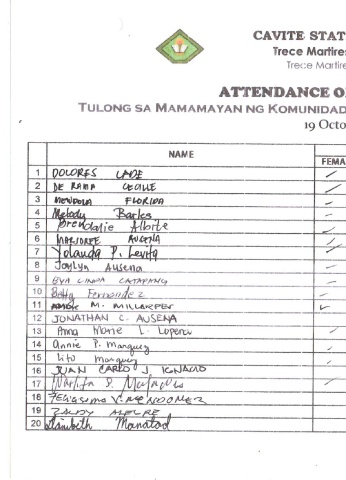 CAVITE STAT
Trece Martires
Trece Martire
ATTENDANCE O
TULONG SA MAMAMAYAN NG KOMUNIDAD
19 Octo
NAME
FEMA
1 DOLORES LADE
2 DE RAMA CECILLE
3 MENDOZA FLORIDA
4 Melody Barles
5 Albite
6 MARJOREE AUSENA
7 Yolanda P. Levita
8 Joylyn Ausena
9 EVA LINDA CATAPANG
10 Betty Fernandez
11 M. MILLARPER
12 JONATHAN C. AUSENA
13 Anna Marie L. Loperez
14 Annie P. Marquez
15 Lito Marquez
16 JUAN CARLO J. IGNACIO
17
18
19 ZALDY ALEGRE
20 Elizabeth Manatad